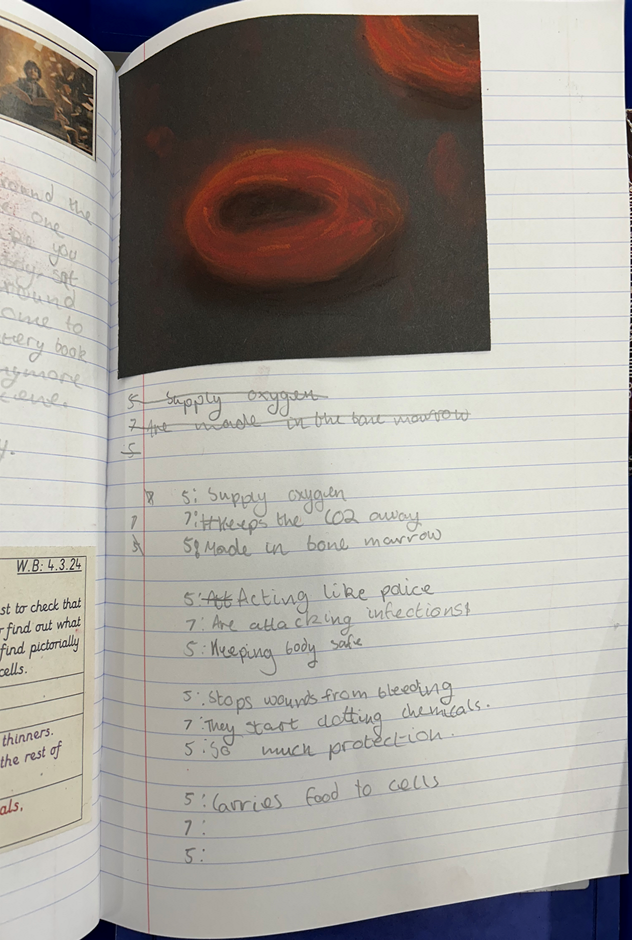 round the
one
you
sat
round
ome to
very book
nymore
y.
W.B: 4.3.24
st to check that
find out what
find pictorially
cells.
thinners.
the rest of
als.
5 Supply oxygen
7 Are made in the bone marrow
5
5: Supply oxygen
7 7: Keeps the CO2 away
5 5: Made in bone marrow
5: Att Acting like police
7: Are attacking infections!
5: Keeping body safe
5: Stops wounds from bleeding
7: They start clotting chemicals.
5: So much protection.
5: Carries food to cells
7:
5: